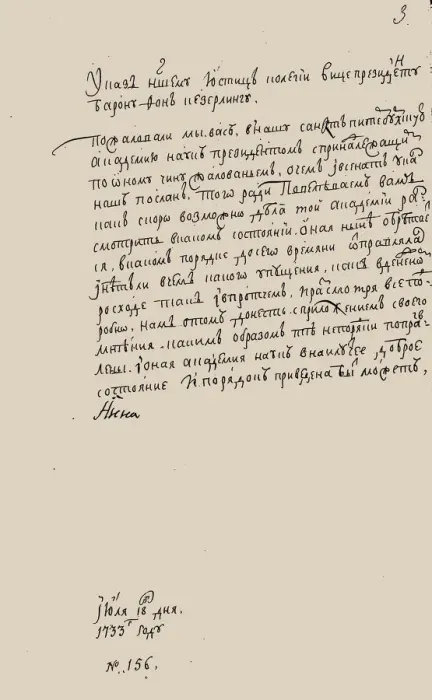 3
Указъ нш҃ему Юстицъ колегіи вицепрезиденту
барону фонъ кезерлингу.
Пожаловали мы васъ, внашу санктъпитербурхскую
академию наукъ президентомъ спринадлежащимъ
потому чину жалованьемъ, очемъ и всенатъ указъ
нашъ посланъ. Того ради Повелеваемъ вамъ
какъ скоро возможно дѣла той академіи ра
смотрить вкакомъ состояніи Оная нынѣ обретает
ся, вкакомъ порядке досего времяни отправляла
и нѣтъли вчемъ какого упущения, какъ вденежно
росходе такъ и впротчемъ, и расмотря все по
робно, намъ отомъ донесть сприложениемъ своего
мнѣния. какимъ образомъ тѣ непорятки поправ
лены. и оная академия наукъ внаилучее, доброе
состояние и порядокъ приведена быть можетъ,
Анна
Июля 18 дня.
1733 году
№. 156.